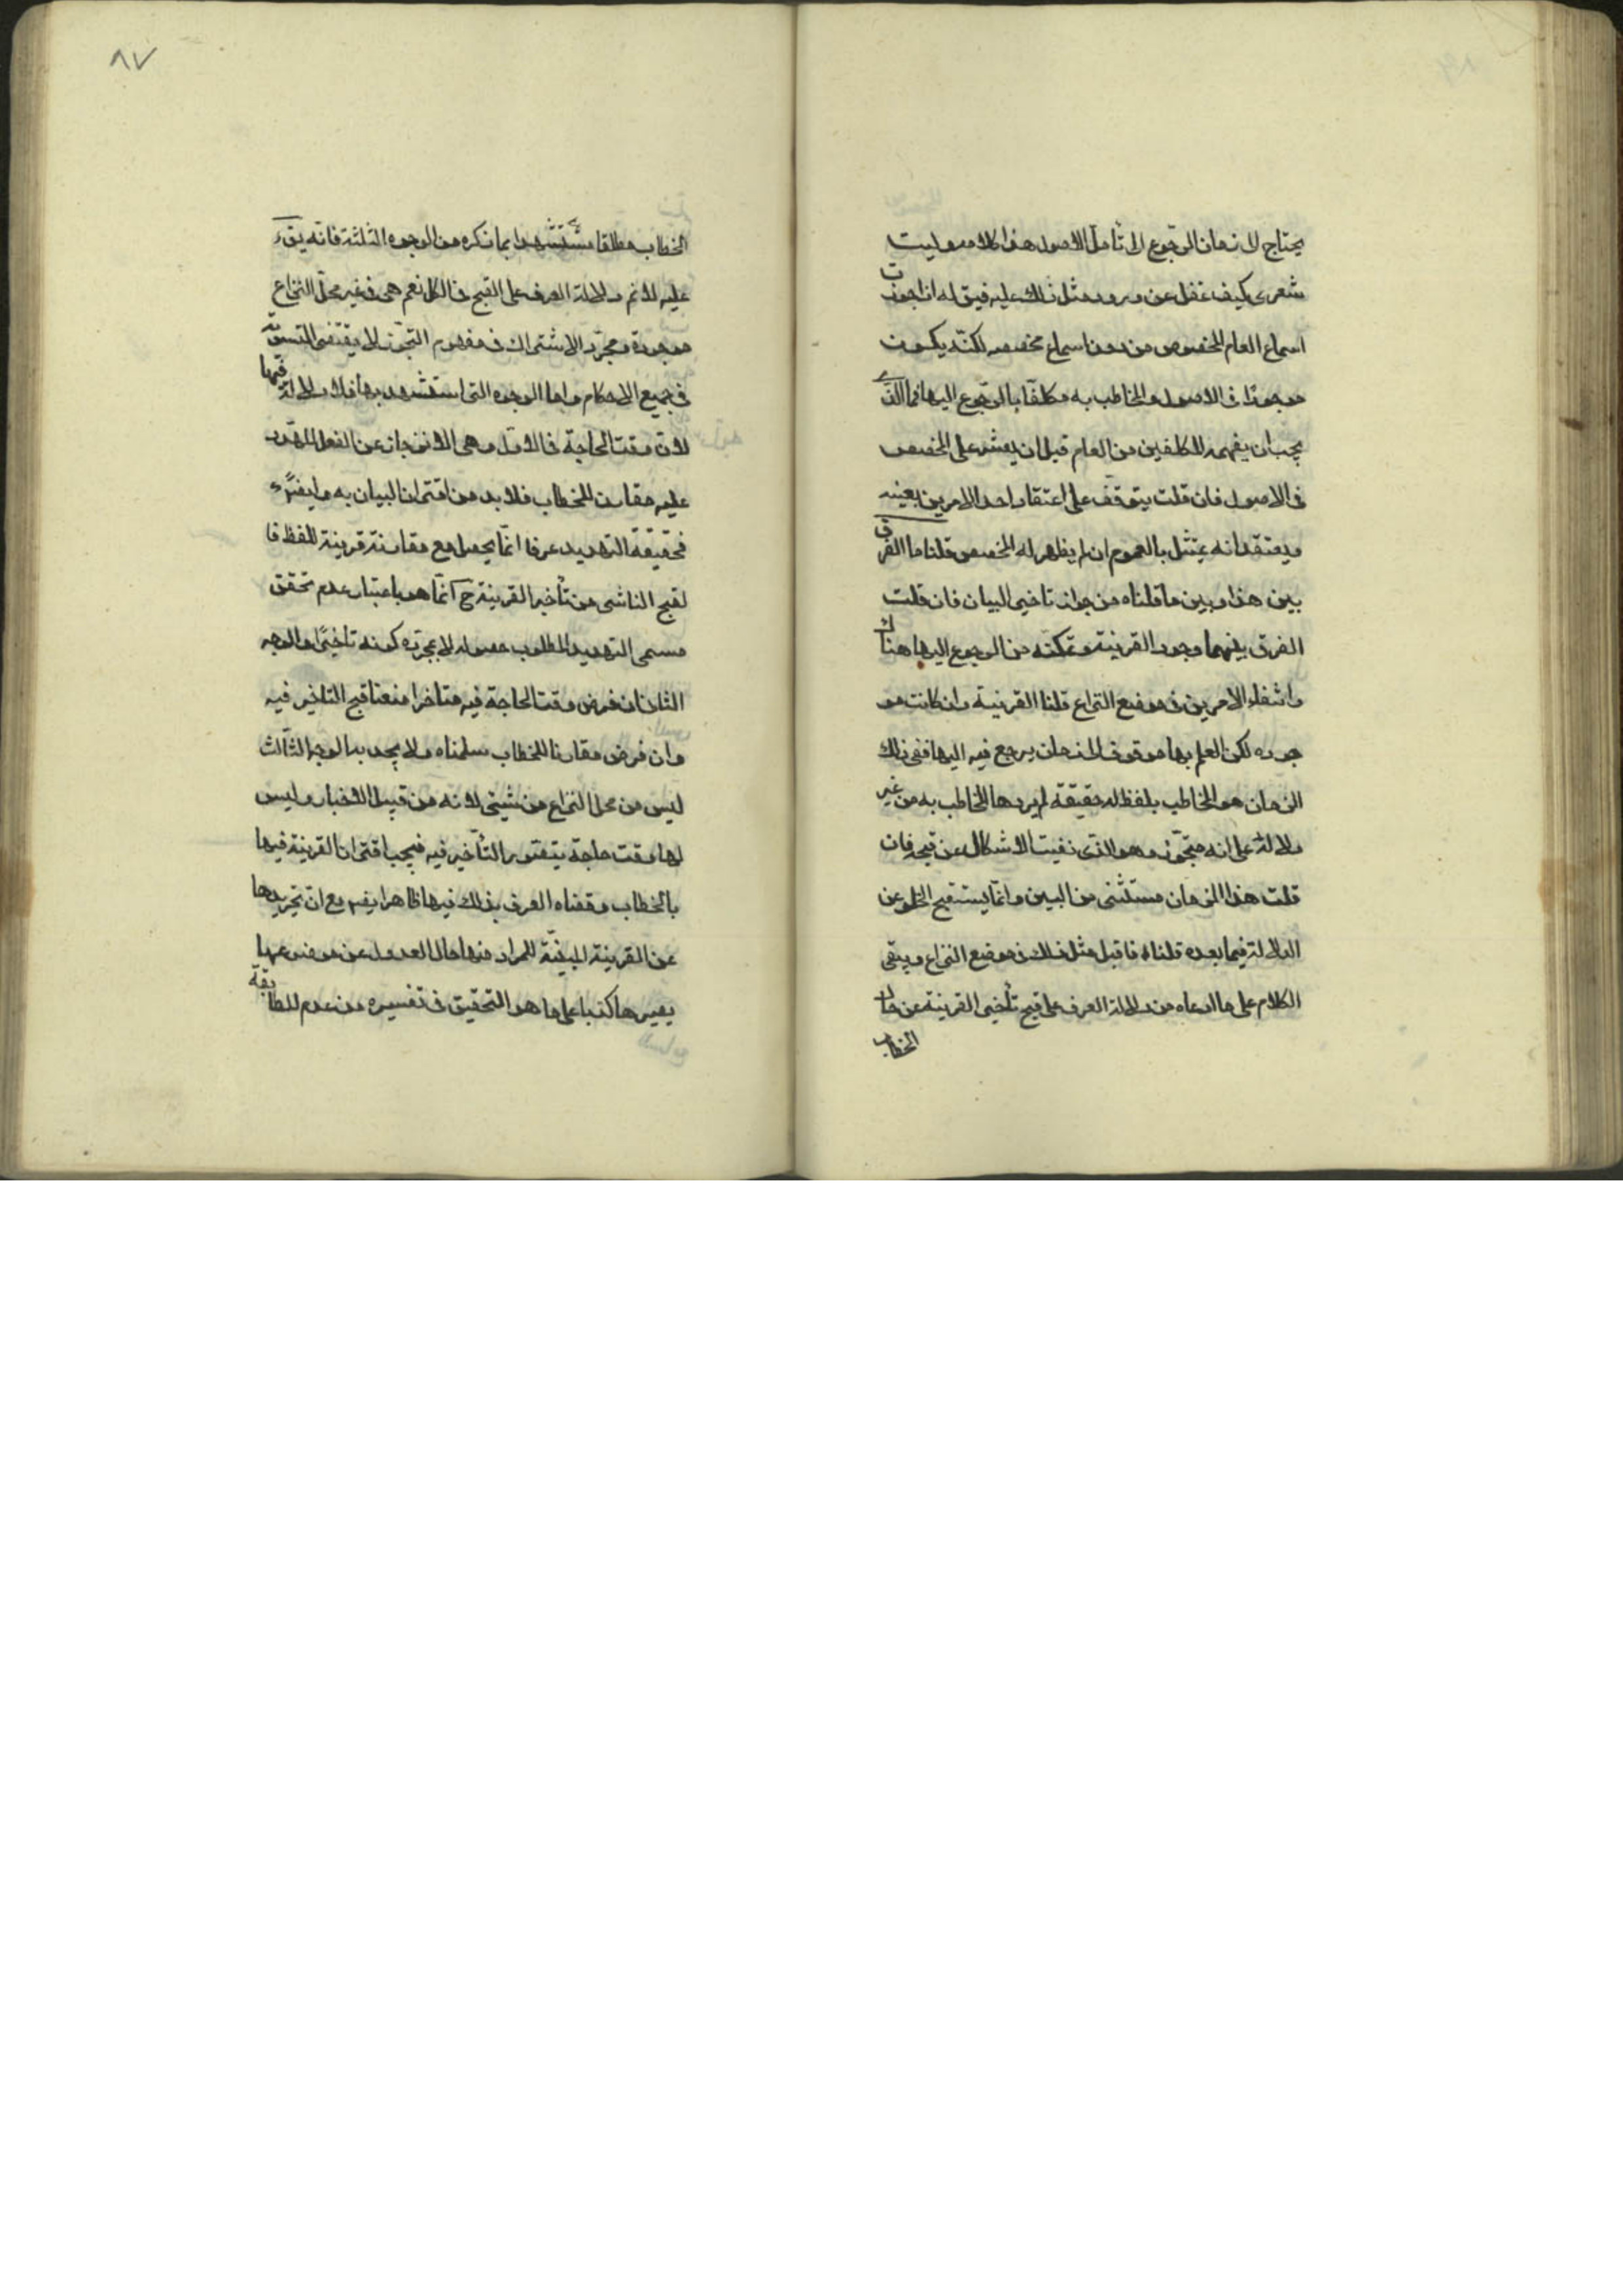 يحتاج لازمان الرجوع الى تأمل الاصول هذا كلامه وليت
شعرى كيف غفل عن ورود مثل ذلك عليه فيق له اذا جوزت
اسماع العام المخصوص من دون اسماع مخصصه لكنه يكون
موجودا فى الاصول والمخاطب به مكلفا بالرجوع اليها فما الذى
يجب ان يفهمه المكلفين من العام قبل ان يعثر على المخصص
فى الاصول فان قلت يتوقف على اعتقاد احد الامرين بعينه
ويعتقد انه يمتثل بالعموم ان لم يظهر له المخصص قلنا ما الفرق
بين هذا وبين ما قلناه من جواز تاخير البيان فان قلت
الفرق بينهما وجود القرينة وتمكنه من الرجوع اليها هناك
وانتفاء الامرين فى موضع النزاع قلنا القرينة وان كانت مو
جوده لكن العلم بها موقوف الى زمان يرجع فيه اليها ففى ذلك
الزمان هو المخاطب بلفظ له حقيقة لم يردها المخاطب به من غير
دلالة على انه متجوز وهو الذى نفيت الاشكال عن قبحه فان
قلت هذا الزمان مستثنى من البين وانما يستقبح الخلو عن
الدلالة فيما بعده قلنا فاقبل مثل ذلك فى موضع النزاع ويبقى
الكلام على ما ادعاه من دلالة العرف على قبح تأخير القرينة عن حال
الخطاب
٨٧
الخطاب مطلقا مستشهدا بما ذكره من الوجوه الثلثة فانه يق
عليه لانم دلالة العرف على القبح فى الكل نعم هى فى غير محل النزاع
موجودة ومجرد الاشتراك فى مفهوم التجوز لا يقتضى التسوية
فى جميع الاحكام واما الوجوه التى استشهد بها فلا دلالة فيها
لان وقت الحاجة فى الاول وهى الانزجار عن الفعل المهدد
عليه مقارن للخطاب فلا بد من اقتران البيان به وايضا
فحقيقة التهديد عرفا انما يحصل مع مقارنة قرينة للفظ فا
لقبح الناشى من تأخير القرينة ح انما هو باعتبار عدم تحقق
مسمى التهديد المطلوب حصوله لا بمجرد كونه تاخيرا والوجه
الثانى ان فرض وقت الحاجة فيه متاخرا منعنا قبح التاخير فيه
وان فرض مقارنا للخطاب سلمناه ولا يجديه الوجه الثالث
ليس من محل النزاع من شيئى لانه من قبيل الاخبار وليس
لها وقت حاجة يتصور التأخير فيه فيجب اقتران القرينة فيها
بالخطاب وقضاء العرف بذلك فيها ظاهر ايضا مع ان تجريدها
عن القرينة المبينة للمراد منها حال العدول عن موضوعها
يصيرها كذبا على ما هو التحقيق فى تفسيره من عدم المطابقة